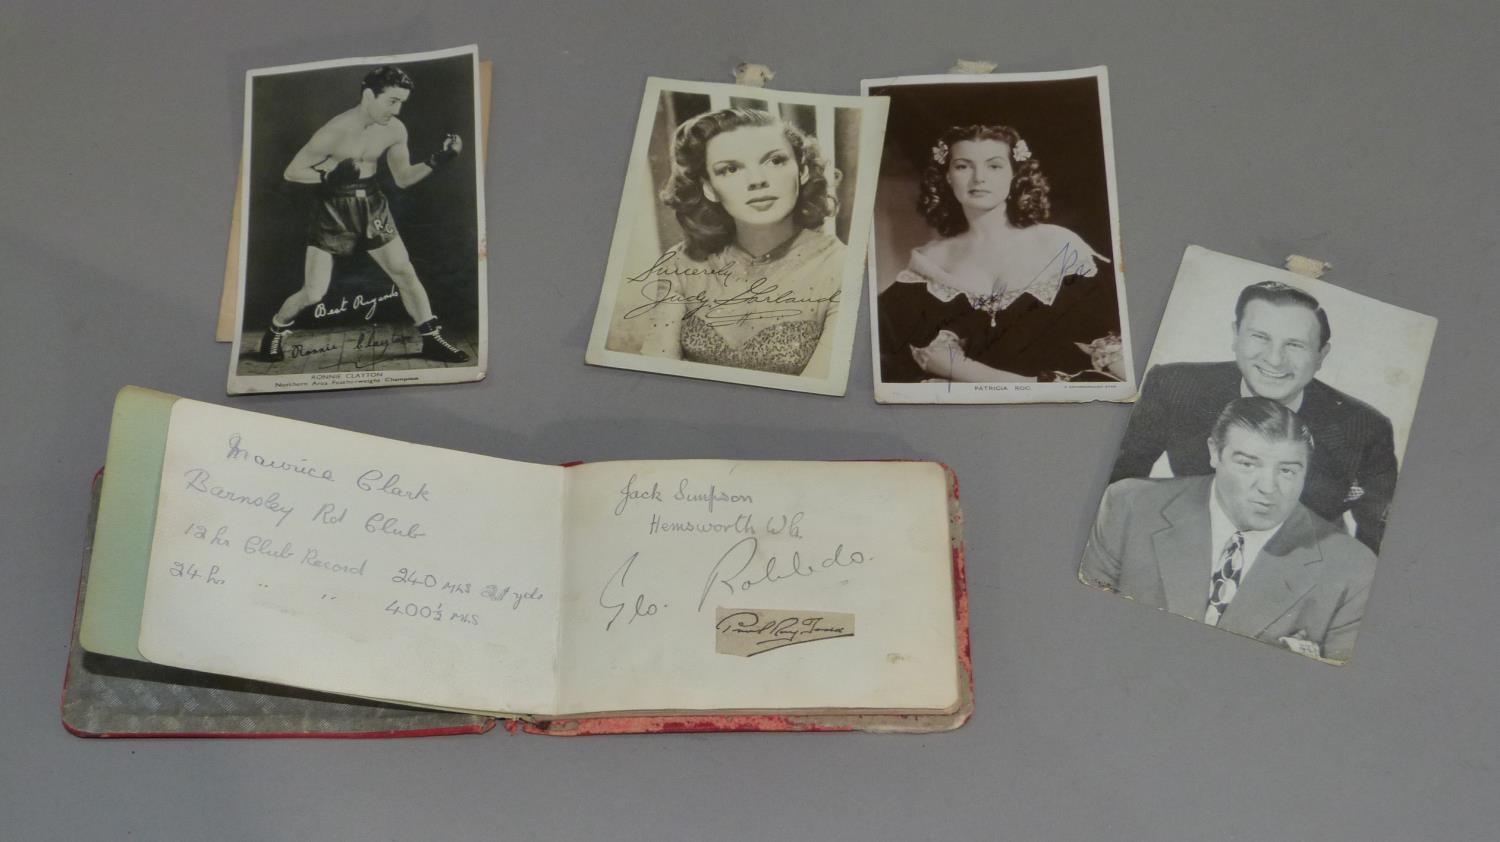 R C
Best Regards
Ronnie Clayton
RONNIE CLAYTON
Northern Area Featherweight Champion
Sincerely
Judy Garland
PATRICIA ROC.
Maurice Clark
Barnsley Rd Club
12 hr Club Record 240 MLS 21 yds
24 hr " " 400½ MLS
Jack Simpson
Hemsworth Wh.
Geo. Robledo.